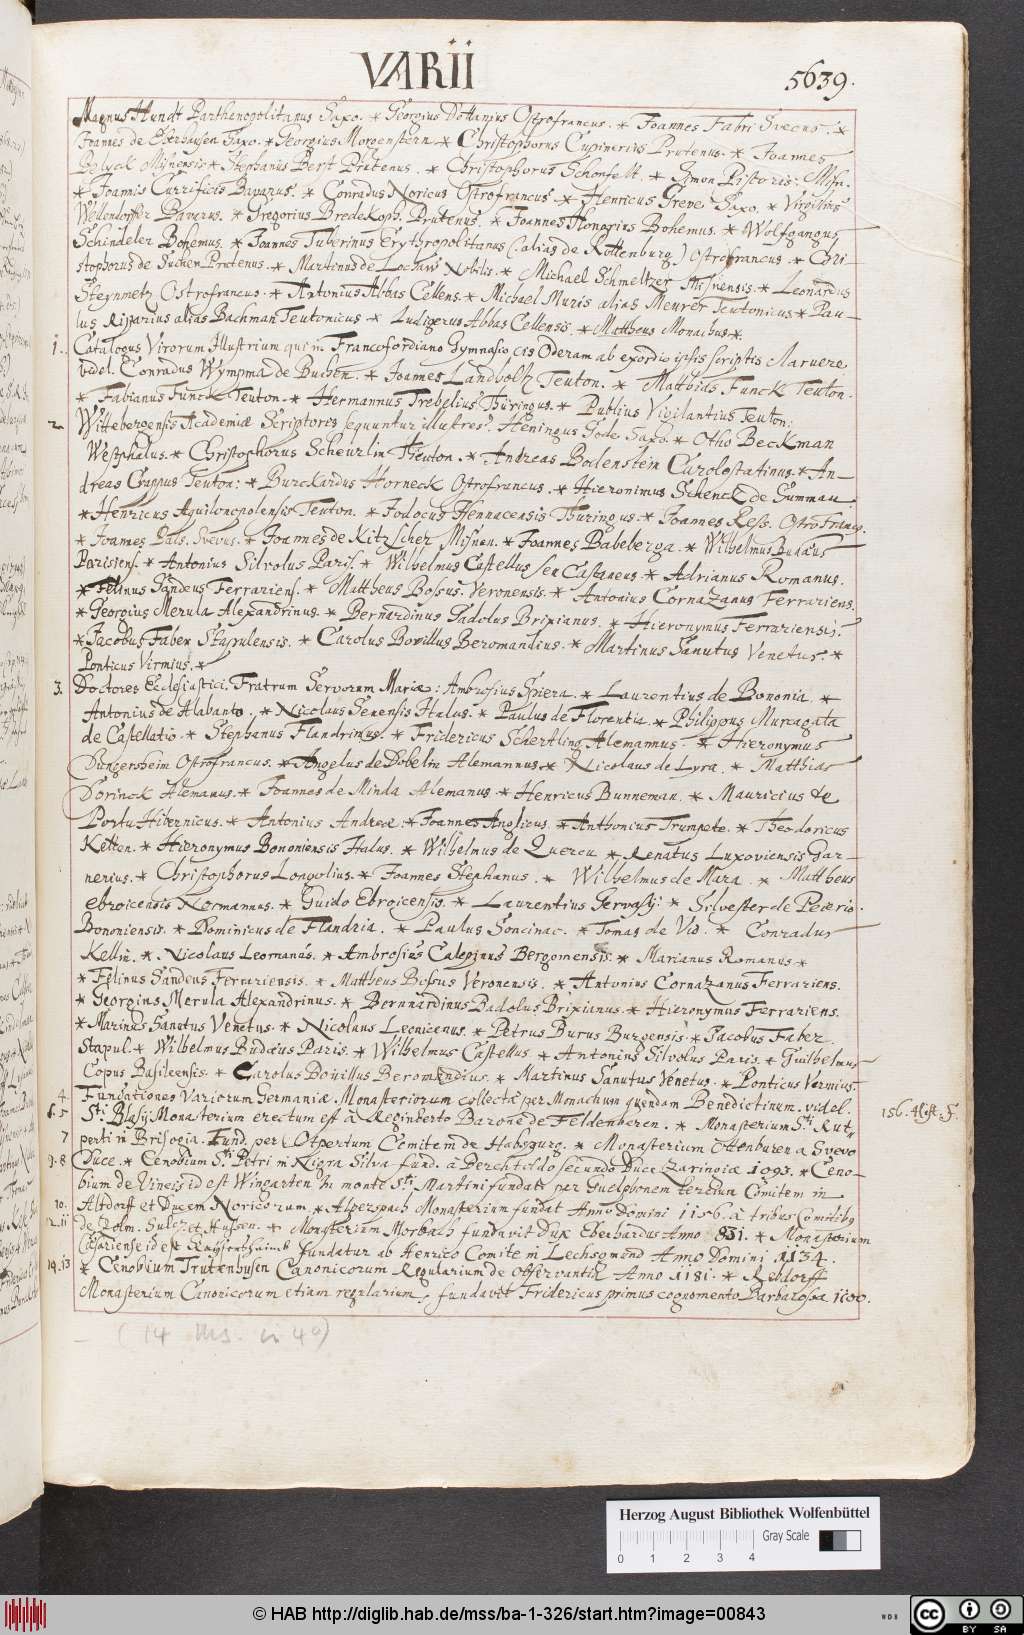 VARII
5639.
Magnus Hundt Parthenopolitanus Saxo. * Georgius Dottanius Ostrofrancus. * Joannes Fabri Svecus. *
Joannes de Saxo. * Georgius Morgenstern. * Christophorus Cupinerius Prutenus. * Joannes
Belyck Misnensis * Stephanus Prutenus. * Christophorus Schonfelt. * Simon Pistoris: Misn.
* Joannis Currificis Bavarus. * Conradus Noricus Ostrofrancus * Henricus Greve Saxo. * Virgilius
Wellendorffer Bavarus. * Gregorius Bredekoph. Prutenus. * Joannes Honorius Bohemus. * Wolfgangus
Schindeler Bohemus. * Joannes Tuberinus Erythropolitanus (alias de Rottenburg) Ostrofrancus. * Chri-
stophorus de Suchen Prutenus. * Martinus de Nobilis. * Michael Schmeltzer Misnensis. * Leonardus
Steynmetz Ostrofrancus. * Antonius Abbas Cellens. * Michael Muris alias Meurer Teutonicus * Pau-
lus Ripparius alias Bachman Teutonicus * Ludigerus Abbas Cellensis. * Mattheus Monachus *
1. Catalogus Virorum Illustrium qui in Francofordiano Gymnasio cis Oderam ab exordio ipsis scriptis claruere
videl. Conradus Wympina de Buchen. * Joannes Landvoltz Teuton. * Matthias Funck Teuton.
* Fabianus Funck Teuton. * Hermannus Trebelius Thüringus. * Publius Vigilantius Teuton:
2 Wittebergensis Academiæ Scriptores sequuntur illustres. Heningus Gode Saxo. * Otho Beckman
Westphalus. * Christophorus Scheurlin Teuton. * Andreas Bodenstein Carolostatinus. * An-
dreas Crappus Teuton: * Burckardus Horneck Ostrofrancus. * Hieronimus Schenck de Summau
* Henricus Aquilonopolensis Teuton. * Jodocus Isennacensis Thuringus. * Joannes Ress. Ostrofrancg.
* Joannes Pals. Svevus. * Joannes de Kitzscher Misnen. * Joannes Babelerga. * Wilhelmus Budæus
Parisiens. * Antonius Silvolus Paris. * Wilhelmus Castellus seu Castaneus. * Adrianus Romanus.
* Felinus Sandeus Ferrariens. * Mattheus Bossus Veronensis. * Antonius Cornazanus Ferrariens.
* Georgius Merula Alexandrinus. * Bernardinus Gadolus Brixianus. * Hieronymus Ferrariensis.
* Jacobus Faber Stapulensis. * Carolus Bovillus Beromandius. * Martinus Sanutus Venetus. *
Ponticus Virmius. *
3. Doctores Ecclesiastici. Fratrum Servorum Mariæ: Ambrosius Spiera. * Laurentius de Bononia. *
Antonius de Alabanto. * Nicolaus Senensis Italus. * Paulus de Florentia. * Philippus Murcagata
de Castellatio. * Stephanus Flandrinus. * Fridericus Schertling Alemannus. * Hieronymus
Dungersheim Ostrofrancus. * Angelus de Dobelin Alemannus * Nicolaus de Lyra. * Matthias
Dorinck Alemanus. * Joannes de Minda Alemanus * Henricus Bunneman. * Mauricius de
Portu Hibernicus. * Antonius Andreæ. * Joannes Anglicus. * Anthonius Trumpete. * Theodoricus
Ketten. * Hieronymus Bononiensis Italus. * Wilhelmus de Quercu * Renatus Luxoviensis Gar-
nerius. * Christophorus Longolius. * Joannes Stephanus. * Wilhelmus de Mara. * Mattheus
ebroicensis Normannus. * Guido Ebroicensis. * Laurentius Gervasij. * Silvester de Pererio.
Bononiensis. * Dominicus de Flandria. * Paulus Soncinac. * Tomas de Vio. * Conradus
Kellin. * Nicolaus Leomanus. * Ambrosius Calepinus Bergomensis. * Marianus Romanus. *
* Felinus Sandeus Ferrariensis. * Mattheus Bossus Veronensis. * Antonius Cornazanus Ferrariens.
* Georgius Merula Alexandrinus. * Bernnardinus Badolus Brixianus. * Hieronymus Ferrariens.
* Marinus Sanutus Venetus. * Nicolaus Leonicenus. * Petrus Burus Burgensis. * Jacobus Faber.
Stapul. * Wilhelmus Budæus Paris. * Wilhelmus Castellus * Antonius Silvolus Paris. * Guilhelmus
Copus Basileensis. * Carolus Bovillus Beromendius. * Martinus Sanutus Venetus. * Ponticus Vermius.
4 Fundationes Variorum Germaniæ Monasteriorum collectæ per Monachum quendam Benedictinum. videl.
6. 5 Sti Blasij Monasterium erectum est à Reginberto Barone de Feldenberen. * Monasterium Sti Rut-
7 perti in Brisogia. Fund. per Otpertum Comitem de Habspurg. * Monasterium Ottenburen a Svevo
9. 8 Duce. * Cenobium Sti Petri in Nigra Silva fund. à Berchtoldo secundo Duce Zarinoiæ 1093. * Ceno-
bium de Vineis id est Wingarten in monte Sti Martini fundat per Guelphonem tercium Comitem in
10. Altdorff et Ducem Noricorum. * Alperspach Monasterium fundat Anno Domini 1156. à tribus Comitibg
12. 11 de Zolm. Sulcz et Hussen. * Monasterium Morbach fundavit Dux Eberhardus Anno 831. * Monasterium
Cæsariense id est Keysersheimb fundatur ab Henrico Comite in Lechsgmönd Anno Domini 1134.
14. 13 * Cenobium Trutenhusen Canonicorum Regularium de observantia Anno 1181. * Rebdorff
Monasterium Canonicorum etiam regularium, fundavit Fridericus primus cognomento Barbarossa 1100.
156. 4 Hist. F.
(14 Ms. in 4°)
Herzog August Bibliothek Wolfenbüttel
Gray Scale
0 1 2 3 4
© HAB http://diglib.hab.de/mss/ba-1-326/start.htm?image=00843
WDB
cc BY SA